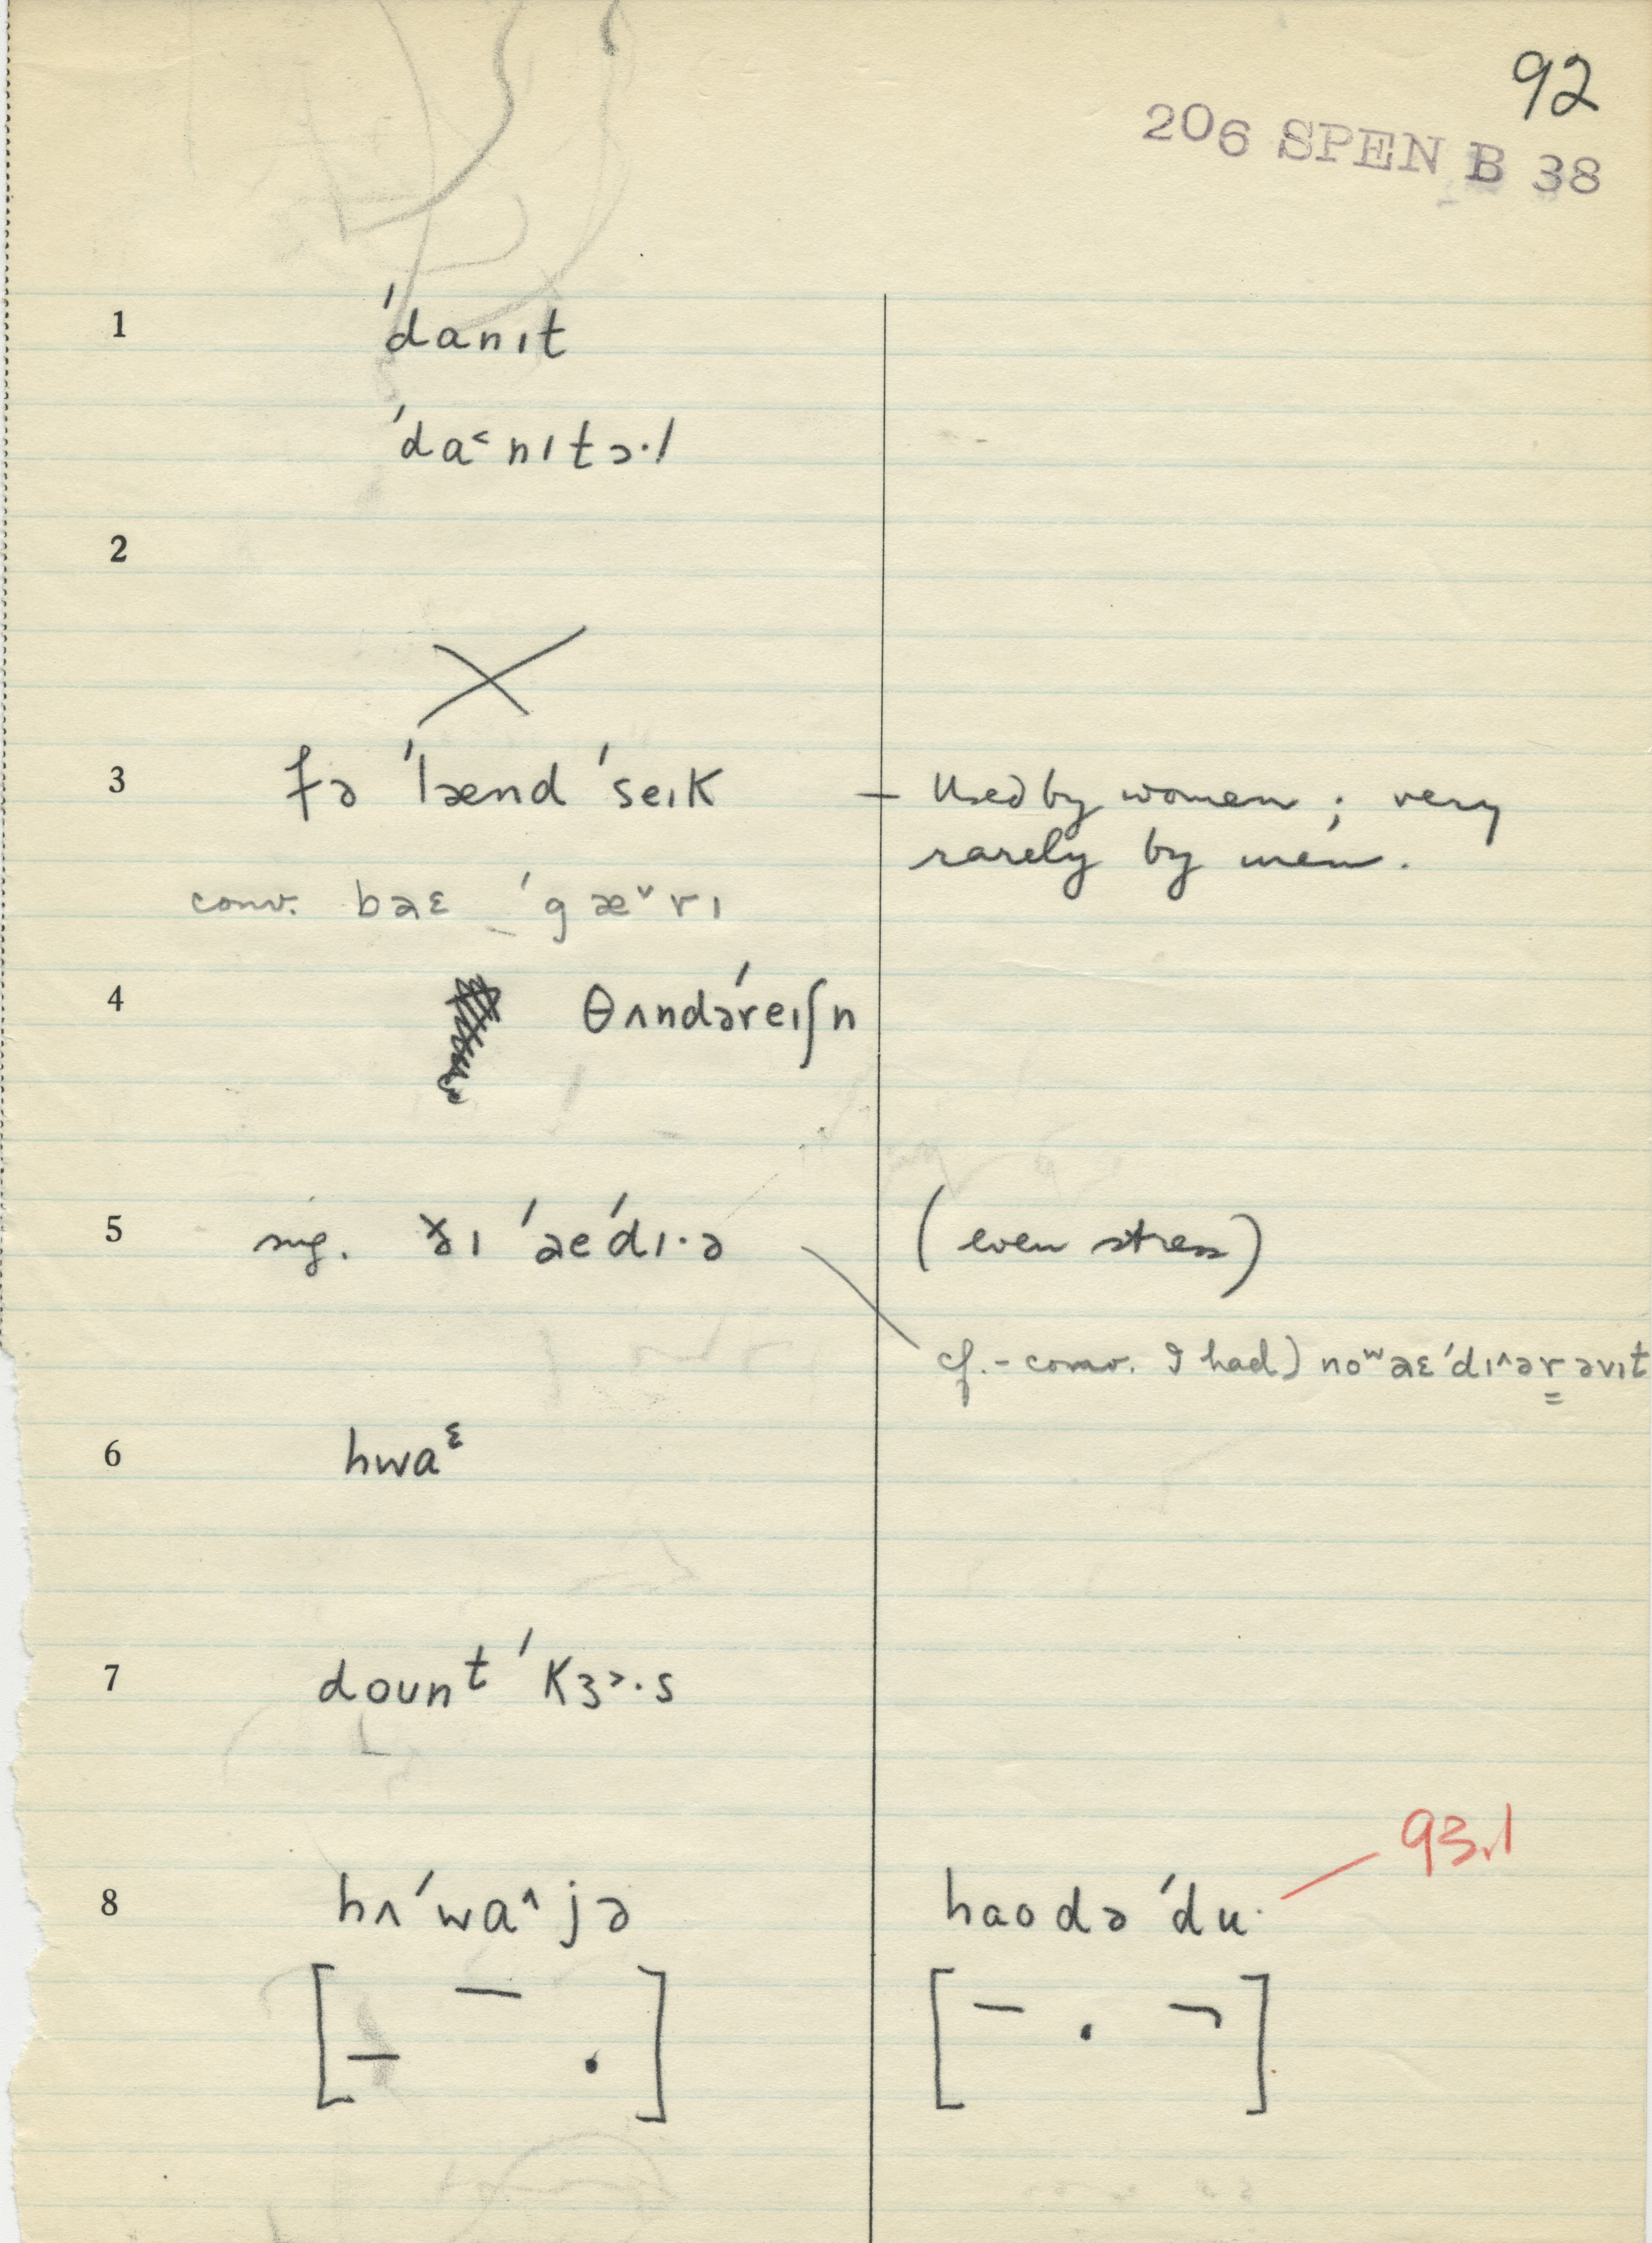 92
206 SPEN B 38
1 ˈdanɪt
ˈda˂nɪtə·l
2
3 fə ˈlænd ˈseɪk — Used by women; very
rarely by men.
conv. bəɛ ˈgæ˅rɪ
4 θʌndəˈreɪʃn
5 sug. ðɪ ˈaeˈdɪ·ə (even stress)
cf. - conv. I had) noʷ aɛˈdɪ^ər əvɪt
6 hwaᵋ
7 doʊnt ˈKɜ˃·s
8 hʌˈwa^jə haodəˈdu· 93.1